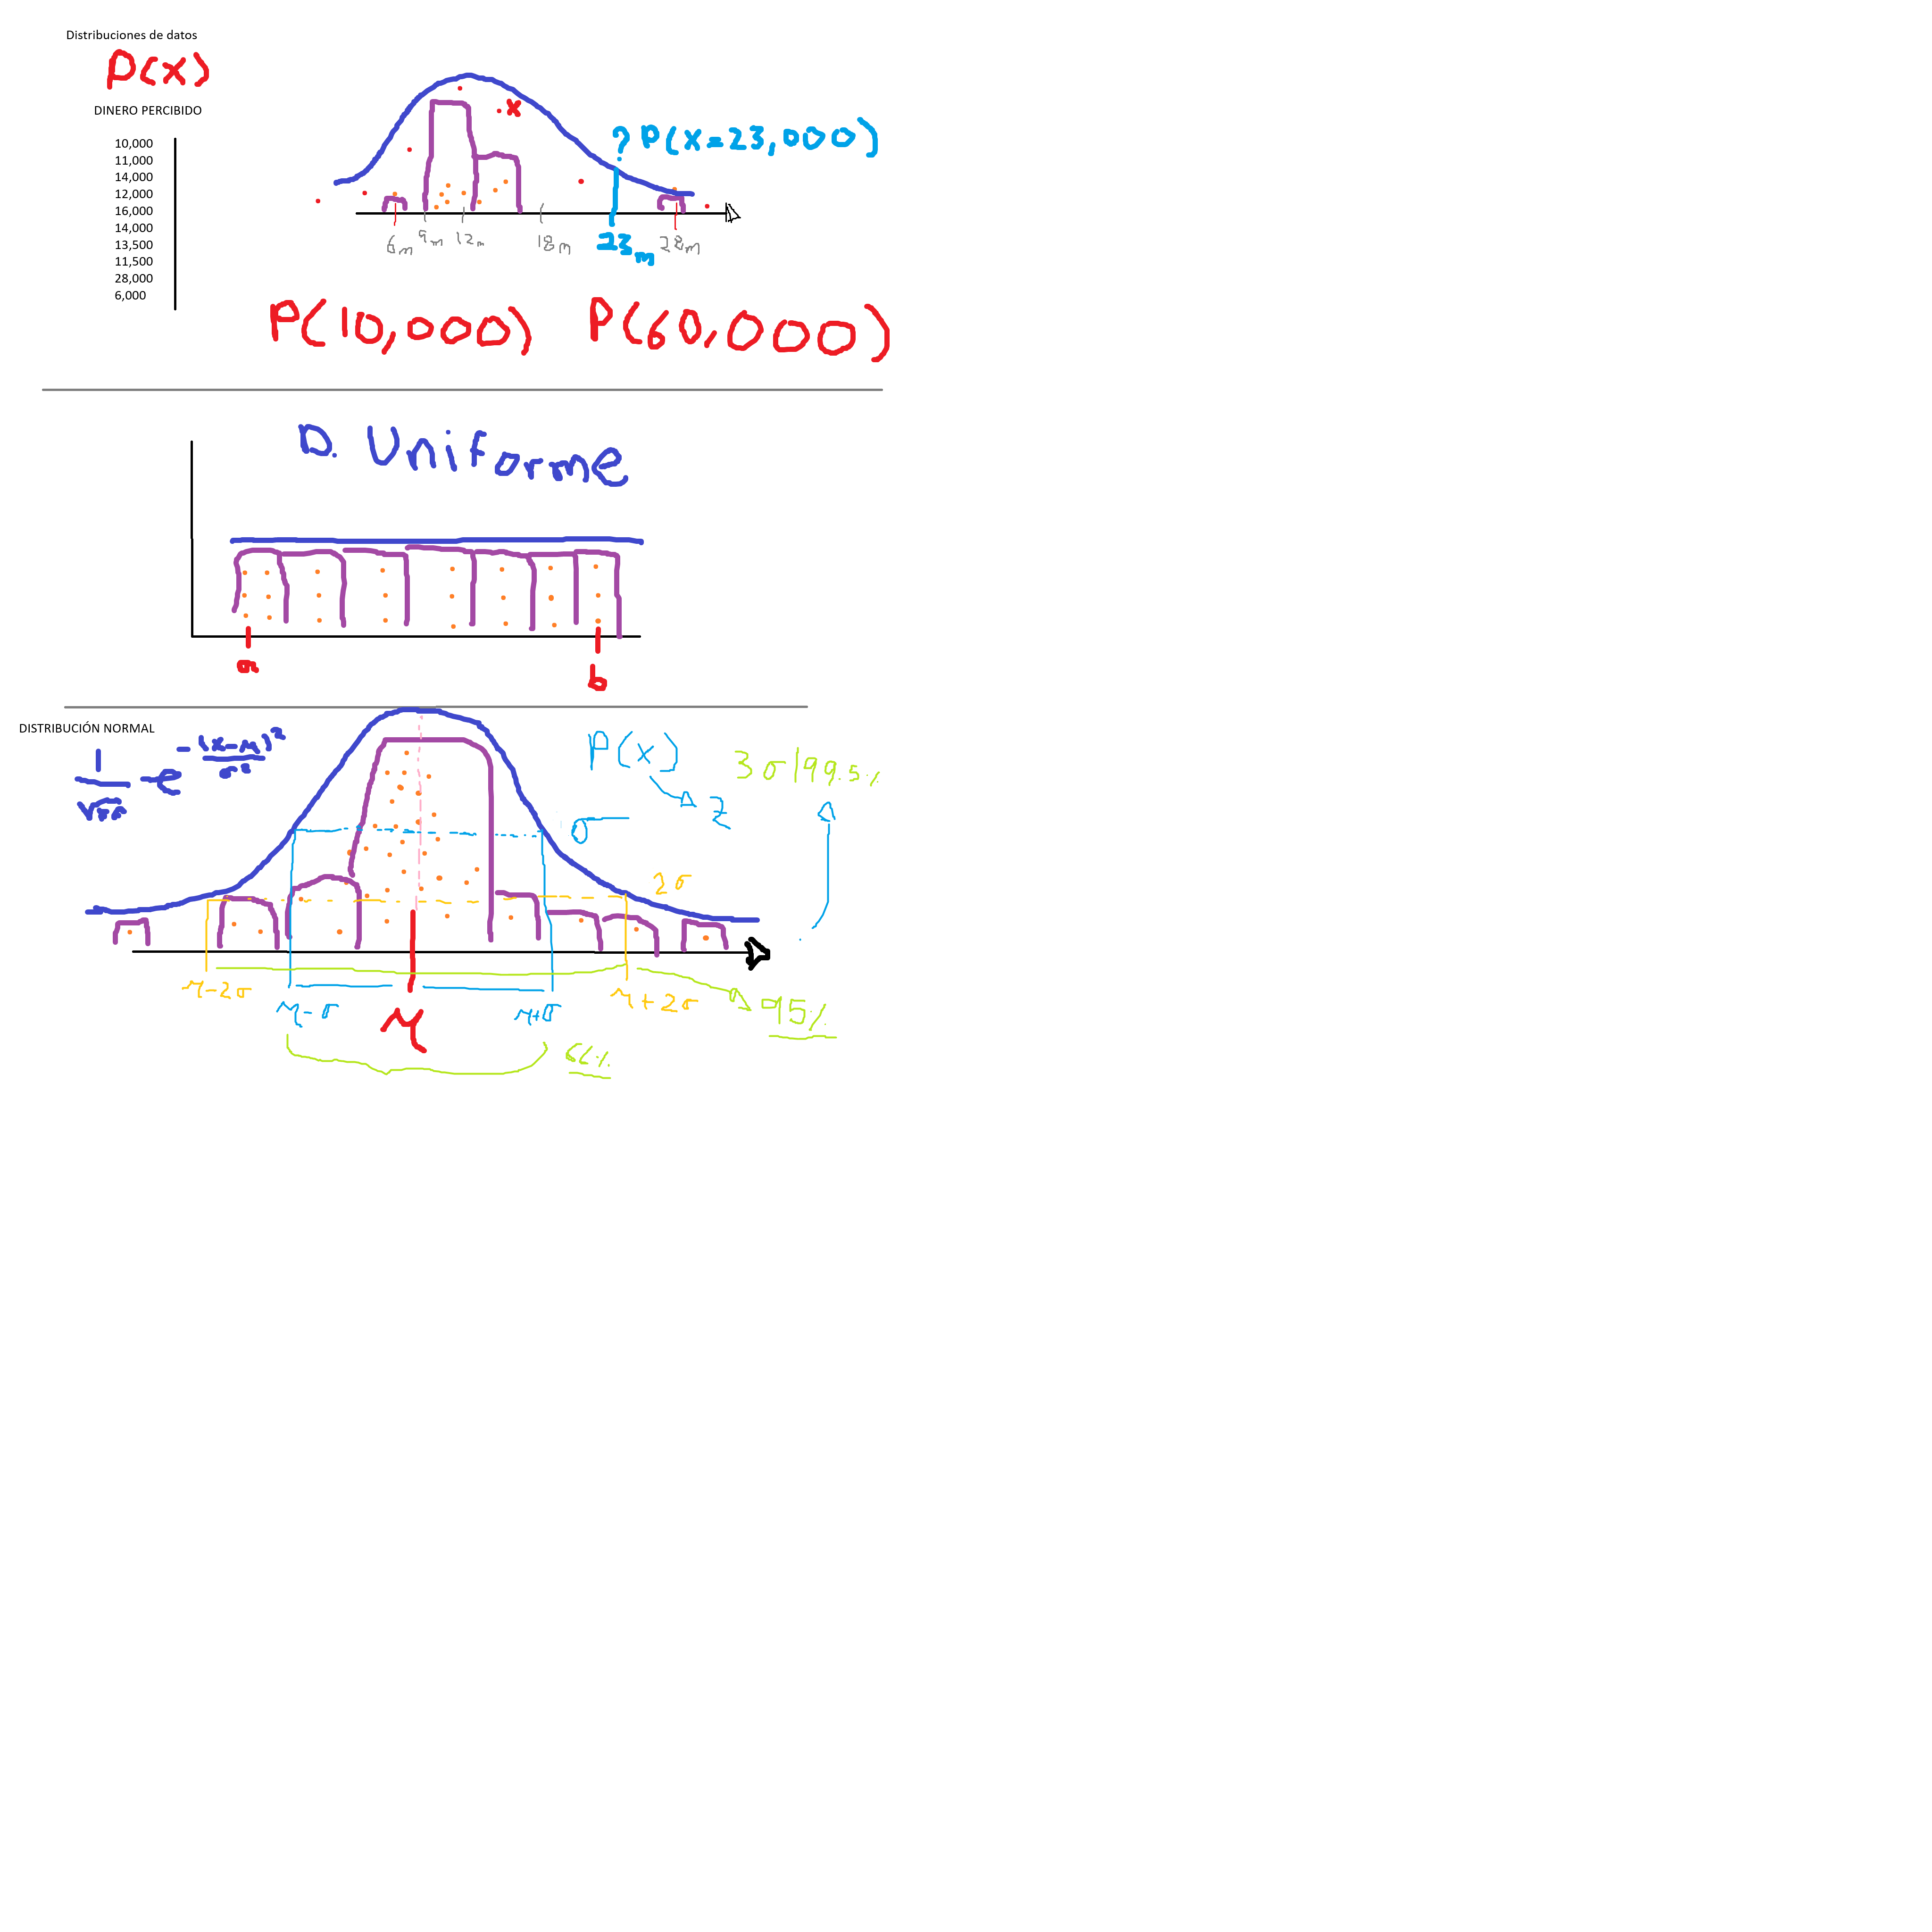 Distribuciones de datos
P(x)
DINERO PERCIBIDO
10,000
11,000
14,000
12,000
16,000
14,000
13,500
11,500
28,000
6,000
x
? P(x=23,000)
6m 9m 12m 18m 23m 28m
P(10,000) P(60,000)
D. Uniforme
a b
DISTRIBUCIÓN NORMAL
P(x)
3σ|99.5%
σ
2σ
μ-2σ μ-σ μ μ+σ μ+2σ
95%